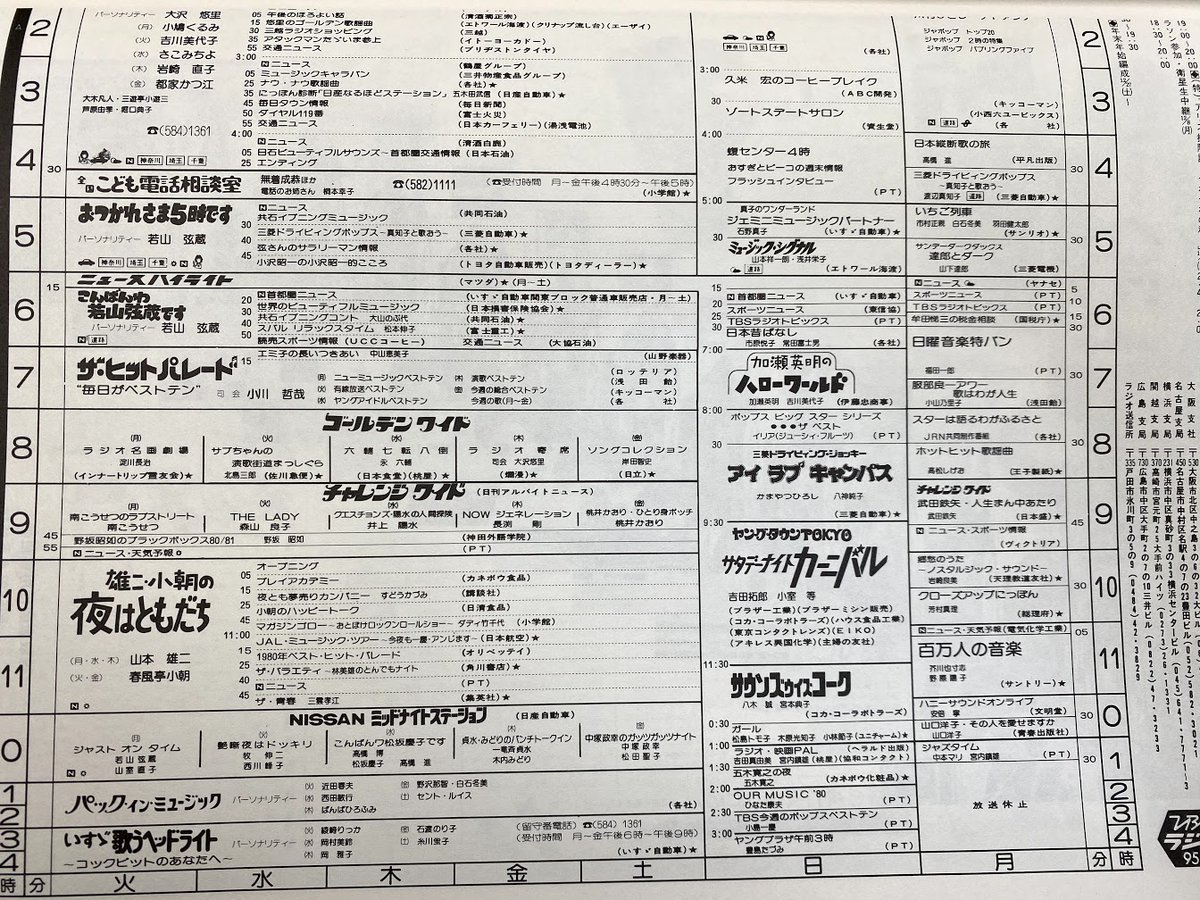 2
パーソナリティー 大沢 悠里
(月) 小鳩くるみ
(火) 吉川美代子
(水) さこみちよ
(木) 岩崎 直子
(金) 都家かつ江
大木凡人・三遊亭小遊三
芦原由季・堀口典子
☎(584)1361
神奈川 埼玉 千葉
05 午後のほろよい話 (清酒菊正宗)
15 悠里のゴールデン歌謡曲 (エトワール海渡)(クリナップ流し台)(エーザイ)
30 三越ラジオショッピング (三越)
35 アタックマンだいま参上 (イトーヨーカドー)
55 交通ニュース (ブリヂストンタイヤ)
3:00
Nニュース (鶴屋グループ)
05 ミュージックキャラバン (三井物産食品グループ)
25 ナウ・ナウ歌謡曲 (各社)★
35 にっぽん診断「日産なるほどステーション」 五木田武信 (日産自動車)★
45 毎日タウン情報 (毎日新聞)
50 ダイヤル119番 (富士火災)
55 交通ニュース (日本カーフェリー)(湯浅電池)
4:00
Nニュース (清酒白鹿)
20 日石ビューティフルサウンズ〜首都圏交通情報 (日本石油)
25 エンディング
3
4
30
全国こども電話相談室
無着成恭ほか
電話のお姉さん 橋本幸子
☎(582)1111
(☎受付時間 月〜金午後4時30分〜午後5時)
(小学館)★
5
おつかれさま5時です
パーソナリティー 若山 弦蔵
神奈川 埼玉 千葉
Nニュース
05 共石イブニングミュージック (共同石油)
30 三菱ドライビングポップス〜真知子と歌おう〜 (三菱自動車)★
40 弦さんのサラリーマン情報 (各社)★
45 小沢昭一の小沢昭一的こころ (トヨタ自動車販売)(トヨタディーラー)★
ニュースハイライト (マツダ)★(月〜土)
15
6
こんばんわ 若山弦蔵です
パーソナリティー 若山 弦蔵
N 道路
N首都圏ニュース (いすゞ自動車関東ブロック普通車販売店・月〜土)
20 世界のビューティフルミュージック (日本損害保険協会)★
30 共石イブニングコント 大山のぶ代 (共同石油)★
40 スバル リラックスタイム 松本伸子 (富士重工)★
50 読売スポーツ情報 (UCCコーヒー) 交通ニュース (大協石油)
7
ザ・ヒットパレード
“毎日がベストテン” 司会 小川 哲哉
15 エミ子の長いつきあい 中山恵美子 (山野楽器)
(月) ニューミュージックベストテン (木) 演歌ベストテン (ロッテリア)
(火) 有線放送ベストテン (金) 今週の総合ベストテン (浅田飴)
(水) ヤングアイドルベストテン 今週の歌(月〜金) (キッコーマン)
(各社)
8
ゴールデン ワイド
(月) ラジオ名画劇場 淀川長治 (インナートリップ霊友会)★
(火) サブちゃんの演歌街道まっしぐら 北島三郎 (佐川急便)★
(水) 六輔七転八倒 永 六輔 (日本食堂)(桃屋)★
(木) ラジオ寄席 司会 大沢悠里 (爛漫)★
(金) ソングコレクション 岸田智史 (日立)★
9
チャレンジ ワイド (日刊アルバイトニュース)
(月) 南こうせつのラブストリート 南こうせつ
(火) THE LADY 森山 良子
(水) クエスチョンズ・陽水の人間探険 井上 陽水
(木) NOW ジェネレーション 長渕 剛
(金) 桃井かおり・ひとり身ポッチ 桃井かおり
45 野坂昭如のブラックボックス80/81 野坂 昭如 (神田外語学院)
55 Nニュース・天気予報 (PT)
10
雄二・小朝の 夜はともだち
(月・水・木) 山本 雄二
(火・金) 春風亭小朝
オープニング
05 プレイアカデミー (カネボウ食品)
15 夜とも夢売りカンパニー すどうかづみ (講談社)
25 小朝のハッピートーク (日清食品)
45 マガジンゴロー〜おとぼけロックンロールショー ダディ竹千代 (小学館)
11:00
JAL・ミュージック・ツアー〜今夜も一慶・アンします〜 (日本航空)★
15 1980年ベスト・ヒット・パレード (オリベッティ)
25 ザ・バラエティ〜林美雄のとんでもナイト (角川書店)★
40 Nニュース (PT)
45 ザ・青春 三雲孝江 (集英社)★
11
NISSAN ミッドナイトステーション (日産自動車)
0
(月) ジャスト オン タイム 若山弦蔵 山室直子
(火) 艶麻夜はドッキリ 牧 伸二 西川峰子
(水) こんばんワ松坂慶子です 高橋 博 松坂慶子 高橋 進
(木) 貞水・みどりのパンチートークイン 一竜斎貞水 木内みどり
(金) 中塚政幸のガッツガッツナイト 中塚政幸 松田聖子
1
2
パック・イン・ミュージック パーソナリティー
(火) 近田春夫 (金) 野沢那智・白石冬美
(水) 西田敏行 (土) セント・ルイス
(木) ばんばひろふみ
(各社)
3
4
いすゞ歌うヘッドライト
〜コックピットのあなたへ〜
パーソナリティー
(火) 綾崎りっか (金) 石渡のり子
(水) 岡村美鈴 (土) 糸川蛍子
(木) 岡 雅子
(留守番電話) ☎(584)1361
(受付時間 月〜金午後6時〜午後9時)
(いすゞ自動車)★
時 分 火 水 木 金 土 日 月 分 時
神奈川 埼玉 千葉
(各社)
3:00
久米 宏のコーヒーブレイク (ABC開発)
ソートステートサロン (資生堂)
4:00
蝮センター4時
おすぎとピーコの週末情報
フラッシュインタビュー (PT)
5:00
真子のワンダーランド
ジェミニミュージックパートナー
石野真子 (いすゞ自動車)★
ミュージック・シグナル
山本祥一朗・浅井栄子
道路 (エトワール海渡)
6:00
N首都圏ニュース (いすゞ自動車)
スポーツニュース (東信協)
TBSラジオトピックス (PT)
日本昔ばなし
市原悦子 常田富士男 (各社)
7:00
加瀬英明の ハローワールド
加瀬英明 吉川美代子 (伊藤忠商事)
8:00
ポップス ビッグ スター シリーズ
●●●ザ ベスト
イリア(ジューシィ・フルーツ) (PT)
三菱ドライビング・ジョッキー
アイ ラブ キャンパス
かまやつひろし 八神純子
(三菱自動車)★
9:30
ヤングタウンTOKYO
サタデーナイトカーニバル
吉田拓郎 小室 等
(ブラザー工業)(ブラザーミシン販売)
(コカ・コーラボトラーズ)(ハウス食品工業)
(東京コンタクトレンズ)(EIKO)
(アキレス興国化学)(主婦の友社)
11:30
サウンズウイズコーク
八木 誠 宮本典子
(コカ・コーラボトラーズ)
0:30
ガール
松島トモ子 木原光知子 小林節子 (ユニチャーム)★
1:00
ラジオ・映画PAL (ヘラルド出版)
吉田真由美 宮内鎮雄 (桃屋)(協和コンタクト)
1:30
五木寛之の夜 (カネボウ化粧品)★
五木寛之
2:00
OUR MUSIC '80
ひなた康夫 (PT)
2:30
TBS今週のポップスベストテン
小島一慶 (PT)
3:00
ヤングプラザ午前3時
豊島たづみ (PT)
ジャポップ トップ20
ジャポップ 2時の特集
ジャポップ パブリングファイブ
(キッコーマン)
(小西六ユービックス)
(各社)
N 道路
日本縦断歌の旅
高橋 進 (平凡出版)
三菱ドライビングポップス
〜真知子と歌おう〜
渡辺真知子 道路 (三菱自動車)★
いちご列車
市村正親 白石冬美 羽田健太郎
(サンリオ)★
サンデータークダックス
達郎とダーク
山下達郎 (三菱電機)
Nニュース (ヤナセ)
スポーツニュース (PT)
TBSラジオトピックス (PT)
牟田悌三の税金相談 (国税庁)★
日曜音楽特バン
福田一郎 (PT)
服部良一アワー
歌はわが人生
小山乃里子 (浅田飴)
スターは語るわがふるさと
JRN共同制作番組 (各社)
ホットヒット歌謡曲
高松しげお (王子製紙)★
チャレンジ ワイド
武田鉄矢・人生まん中あたり
武田鉄矢 (日本盛)★
Nニュース・スポーツ情報 (ヴィクトリア)
郷愁のうた
〜ノスタルジック・サウンド〜
岩崎良美 (天理教道友社)★
クローズアップにっぽん
芳村真理 (総理府)★
Nニュース・天気予報(電気化学工業)
百万人の音楽
芥川也寸志
野際陽子 (サントリー)★
ハニーサウンドオンライブ
安倍 寧 (文明堂)
山口洋子・その人を愛せますか
山口洋子 (青春出版社)
ジャズタイム
中本マリ 宮内鎮雄 (PT)
放送休止
TBSラジオ 95